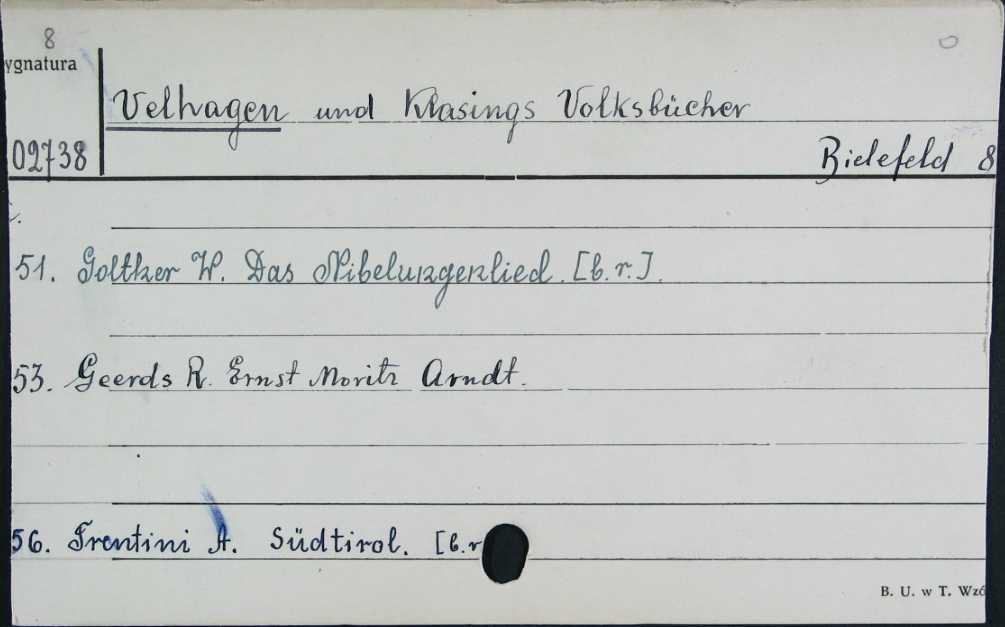 8
ygnatura
Velhagen und Klasings Volksbücher
02738
Bielefeld 8
51. Golther W. Das Nibelungenlied. [b.r.].
53. Geerds R. Ernst Moritz Arndt.
56. Trentini A. Südtirol. [b.r
B. U. w T. Wzó